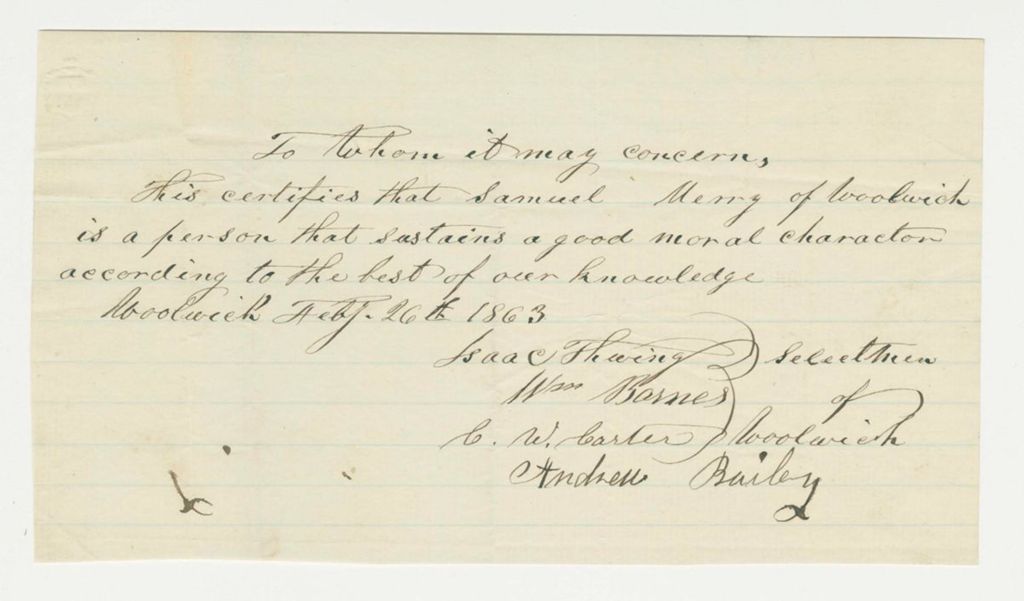 To Whom it may concern,
This certifies that Samuel Merry of Woolwich
is a person that sustains a good moral character
according to the best of our knowledge
Woolwich Feby. 26th 1863
Isaac Thwing Selectmen
Wm Barnes of
C. W. Carter Woolwich
Andrew Bailey